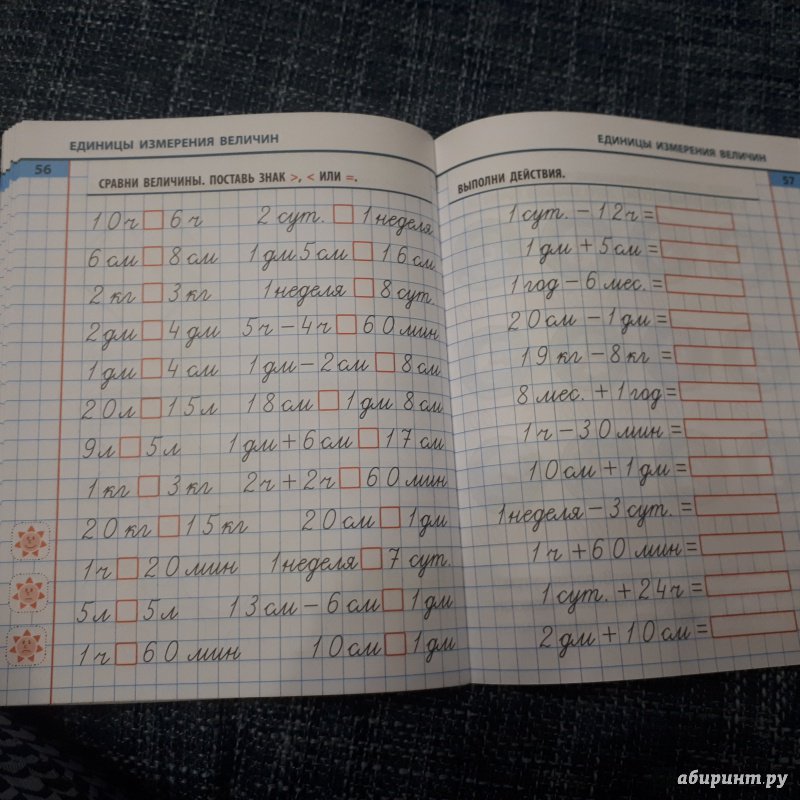 ЕДИНИЦЫ ИЗМЕРЕНИЯ ВЕЛИЧИН
56
СРАВНИ ВЕЛИЧИНЫ. ПОСТАВЬ ЗНАК >, < ИЛИ =.
10ч □ 6ч 2 сут. □ 1 неделя
6 см □ 8 см 1 дм 5 см □ 16 см
2 кг □ 3 кг 1 неделя □ 8 сут.
2 дм □ 4 дм 5ч – 4ч □ 60 мин
1 дм □ 4 см 1 дм – 2 см □ 8 см
20л □ 15л 18 см □ 1 дм 8 см
9л □ 5л 1 дм + 6 см □ 17 см
1 кг □ 3 кг 2ч + 2ч □ 60 мин
20 кг □ 15 кг 20 см □ 1 дм
1ч □ 20 мин 1 неделя □ 7 сут.
5л □ 5л 13 см – 6 см □ 1 дм
1ч □ 60 мин 10 см □ 1 дм
ЕДИНИЦЫ ИЗМЕРЕНИЯ ВЕЛИЧИН
57
ВЫПОЛНИ ДЕЙСТВИЯ.
1 сут. – 12ч =
1 дм + 5 см =
1 год – 6 мес. =
20 см – 1 дм =
19 кг – 8 кг =
8 мес. + 1 год =
1ч – 30 мин =
10 см + 1 дм =
1 неделя – 3 сут. =
1ч + 60 мин =
1 сут. + 24ч =
2 дм + 10 см =
абиринт.ру